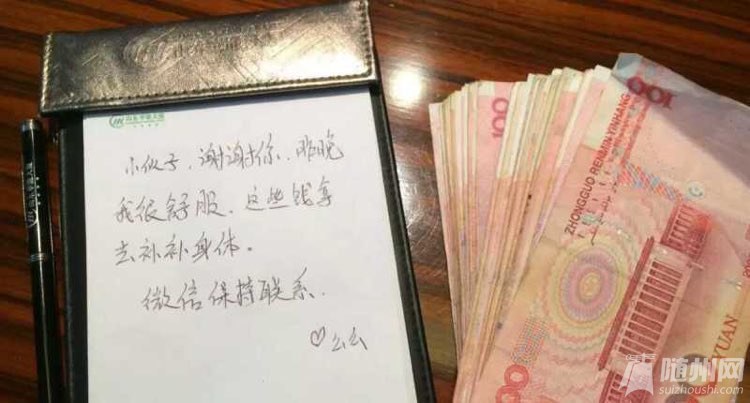 小伙子、谢谢你、昨晚
我很舒服、这些钱拿
去补补身体。
微信保持联系.
♡么么
100
100
ZHONGGUO RENMIN YINHANG
YUAN
随州网
suizhoushi.com